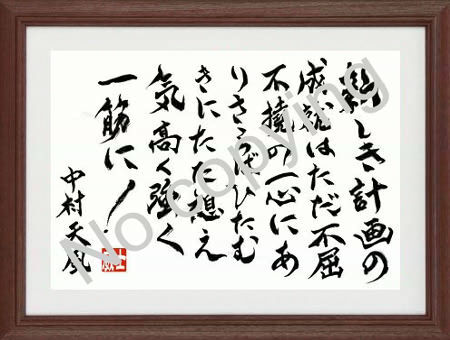 新しき計画の
成就はただ不屈
不撓の一心にあ
りさらばひたむ
きにただ想え
気高く強く
一筋に！
中村天風
No copying